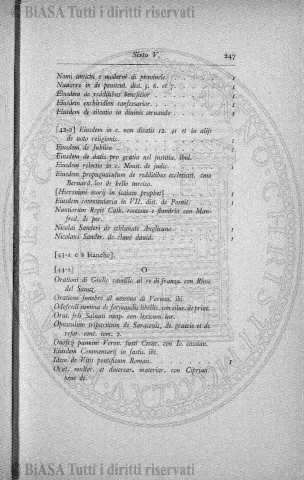 © BiASA Tutti i diritti riservati
Sisto V. 247
Nomi antichi e moderni di provincie 1
Navarro in de penitent. dist. 5. 6. et 7. 1
Eiusdem de redditibus beneficior 1
Eiusdem enchiridion confessarior. 1
Eiusdem de silentio in divinis servando 1
[42-a] Eiusdem in c. non dicatis 12. 41 et in alijs
de voto religionis.
Eiusdem de Jubileo 1
Eiusdem de datis pro gratia vel justitia. ibid.
Eiusdem relectio in c. Novit. de judic. 1
Eiusdem propugnaculum de redditibus ecclesiast. cum
Bernard. leo de bello turcico. 1
[Hieronimi osorij in isaiam prophet] 1
Eiusdem commentaria in VII. dist. de Poenit 1
Nantiarum Regis Cath. recessus e flandria con Man-
fred. de per. 1
Nicolai Sanderi de schismate Anglicano 1
Nicolaus Sander. de clave david. 1
[43-a e b bianche].
[44-a] O
Orationi di Giulio camillo al re di franza. con Rime
del Sanaz.
Oratione funebre al navono de Verma. ibi.
Odofredi summa de formandis libellis. cum alior. de priat.
Orat. fris Salviati neap. con lexicum iur.
Opusculum tripartitum de Saracenis, de graecis et de
refor. conc. tom. 2.
Onufrij panvini Veron. fasti Cesar. con Io. cassian.
Eiusdem Commentarij in fastis. ibi.
Idem de Vitis pontificum Roman. 1
Orat. multor. et diversar. materiar. con Ciprian.
bene di.
© BiASA Tutti i diritti riservati